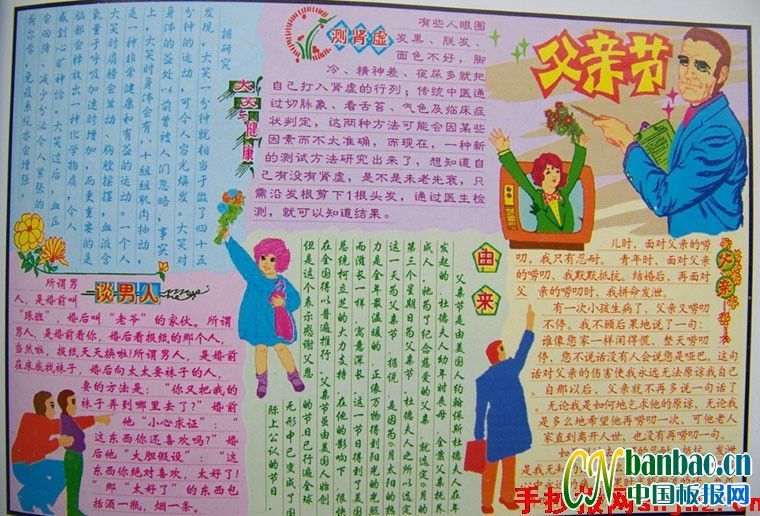 父亲节
测肾虚
有些人眼圈
发黑、脱发、
面色不好，脚
冷、精神差、夜尿多就把
自己打入肾虚的行列；传统中医通
过切脉象、看舌苔、气色及临床症
状判定，这两种方法可能会因某些
因素而不太准确，而现在，一种新
的测试方法研究出来了，想知道自
己有没有肾虚，是不是未老先衰，只
需沿发根剪下1根头发，通过医生检
测，就可以知道结果。
大笑与健康
据研究
发现，大笑一分钟就相当于做了四十五
分钟的运动，可令人容光焕发。大笑对
身体的益处以前曾被人们忽略。事实
上，大笑时身体会有八十组组肌肉抽动，
是一种非常健康和有益的运动。一个人
大笑时肩膀会耸动，胸膛摇摆，血液含
氧量于呼吸加速时增加，而更重要的是
脑部会释放出一种化学物质，令人
感到心旷神怡，大笑过后，血压
会回降，减少分泌令人紧张的
荷尔蒙，免疫系统亦会增强
谈男人
所谓男
人，是婚前叫
“跟班”，婚后叫“老爷”的家伙。所谓
男人，是婚前看你，婚后看报纸的那个人，
当然啦，报纸天天换啦！所谓男人，是婚前
在床底找袜子，婚后向太太要袜子的人，
要的方法是：“你又把我的
袜子弄到哪里去了？”婚前
他“小心求证”：“
这东西你还喜欢吗？”婚
后他“大胆假设”：“
这东西你绝对喜欢，太好了！
”那“太好了”的东西包
括酒一瓶，烟一条。
由来
父亲节是由美国人约翰保斯杜德夫人在年
发起的。杜德夫人幼年时丧母，全靠父亲抚养
成人，她为了纪念慈爱的父亲，就选定6月的
第三个星期日为父亲节。杜德夫人之所以选定
这一天为父亲节，据说，是因为6月太阳的热
力是全年最温暖的，正像万物得到阳光的光照
而滋长一样，寓意深长。这一节日得到美国
总统柯立芝的大力支持，在他的影响下，很快
在全国得以普遍推行。父亲节虽由美国人始创
但是这个表示感谢父恩的节日已行遍全球
无形中已变成了国
际上公认的节日。
父亲
儿时，面对父亲的唠
叨，我只有忍耐。青年时，面对父亲的唠
叨，我默默抵抗。结婚后，再面对
父亲的唠叨时，我拼命发泄。
有一次小孩生病了，父亲又唠叨
不停。我不顾后果地说了一句：
谁像您家一样闲得慌，整天唠叨
停，您不说话没有人会说您是哑巴，这句
话对父亲的伤害使我永远无法原谅我自己
自那以后，父亲就不再多说一句话了
。无论我是如何地乞求他的原谅，无论我
是多么地希望他再唠叨一次，可他老人
家直到离开人世，也没有再唠叨一句。
CN banbao.cn
中国板报网
手抄报网